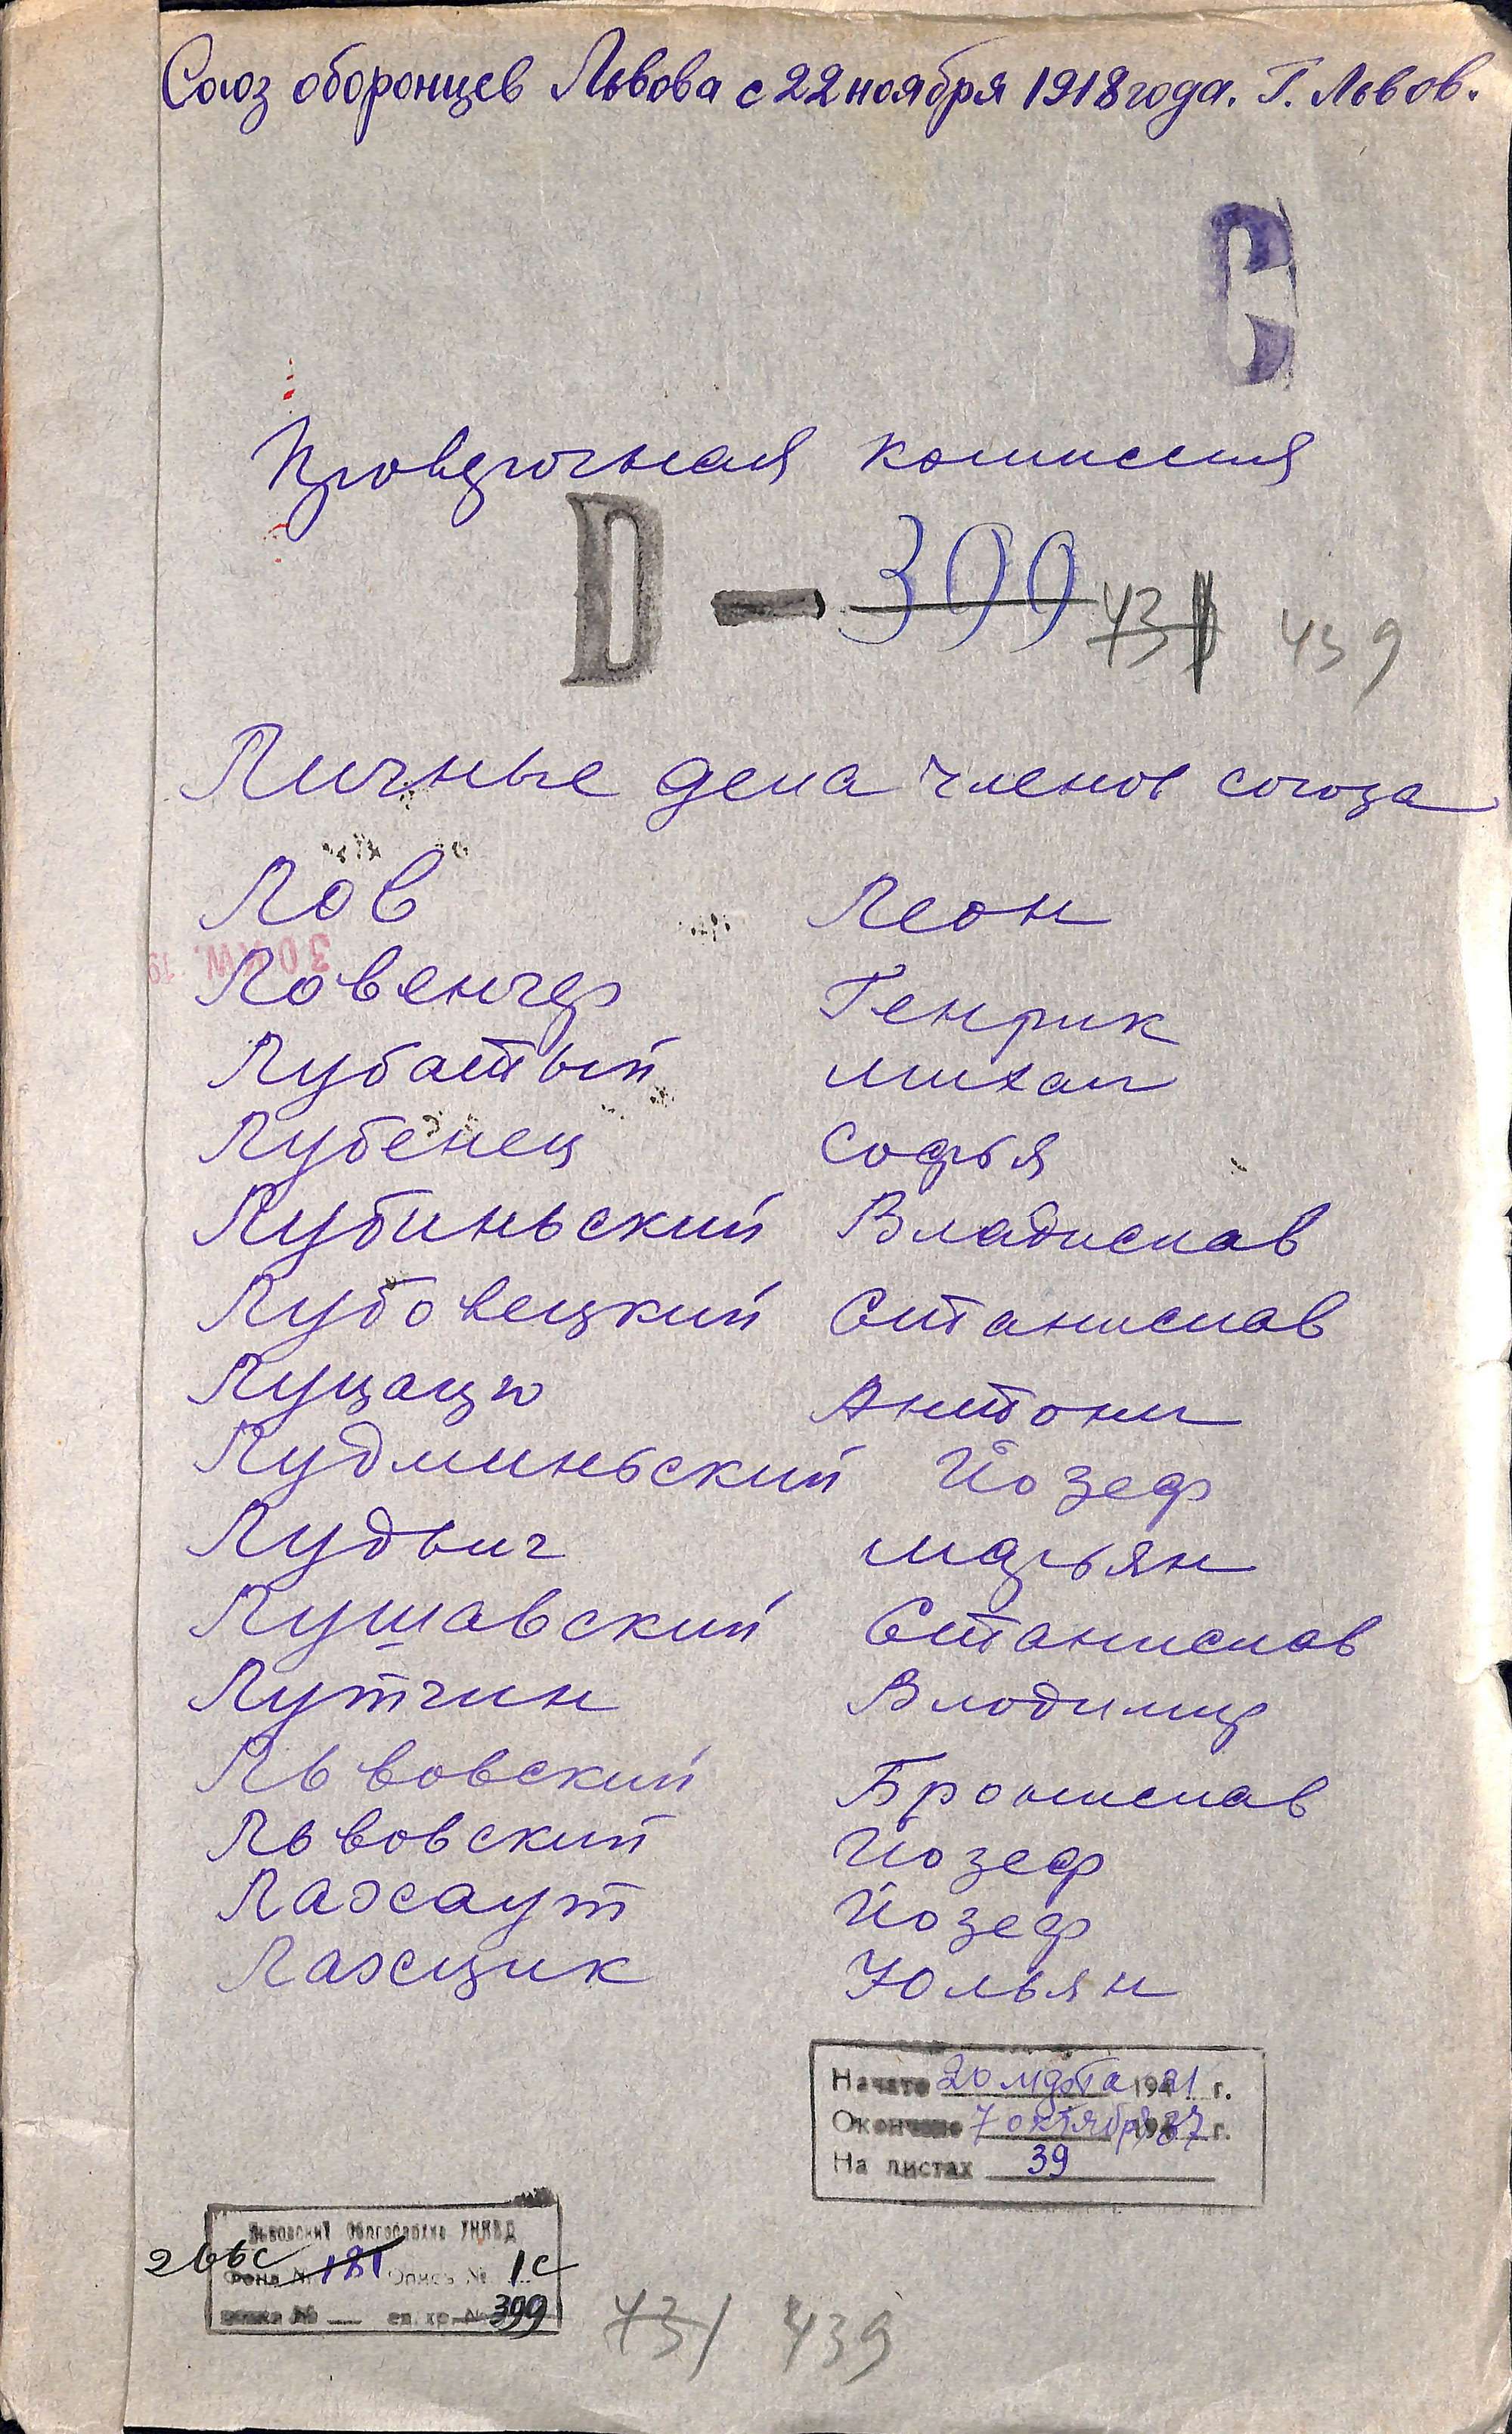 Союз оборонцев Львова с 22 ноября 1918 года. Г. Львов.
С
Проверочная комиссия
D — 399 431 439
Личные дела членов союза
Лов Леон
Ловенгер Генрик
Лубатый Михал
Лубенец Софья
Лубиньский Владислав
Лубовецкий Станислав
Луцацю Антони
Лудминьский Йозеф
Лудвиг Марьян
Лушавский Станислав
Лутчин Влодимир
Львовский Бронислав
Львовский Йозеф
Лахсаут Йозеф
Юльян
Начато 20 марта 1921 г.
Окончено 7 октября 1937 г.
На листах 39
Львовский Облгосархив УНКВД
266с Фонд № 181 Опись № 1с
ед. хр. № 399
431 439